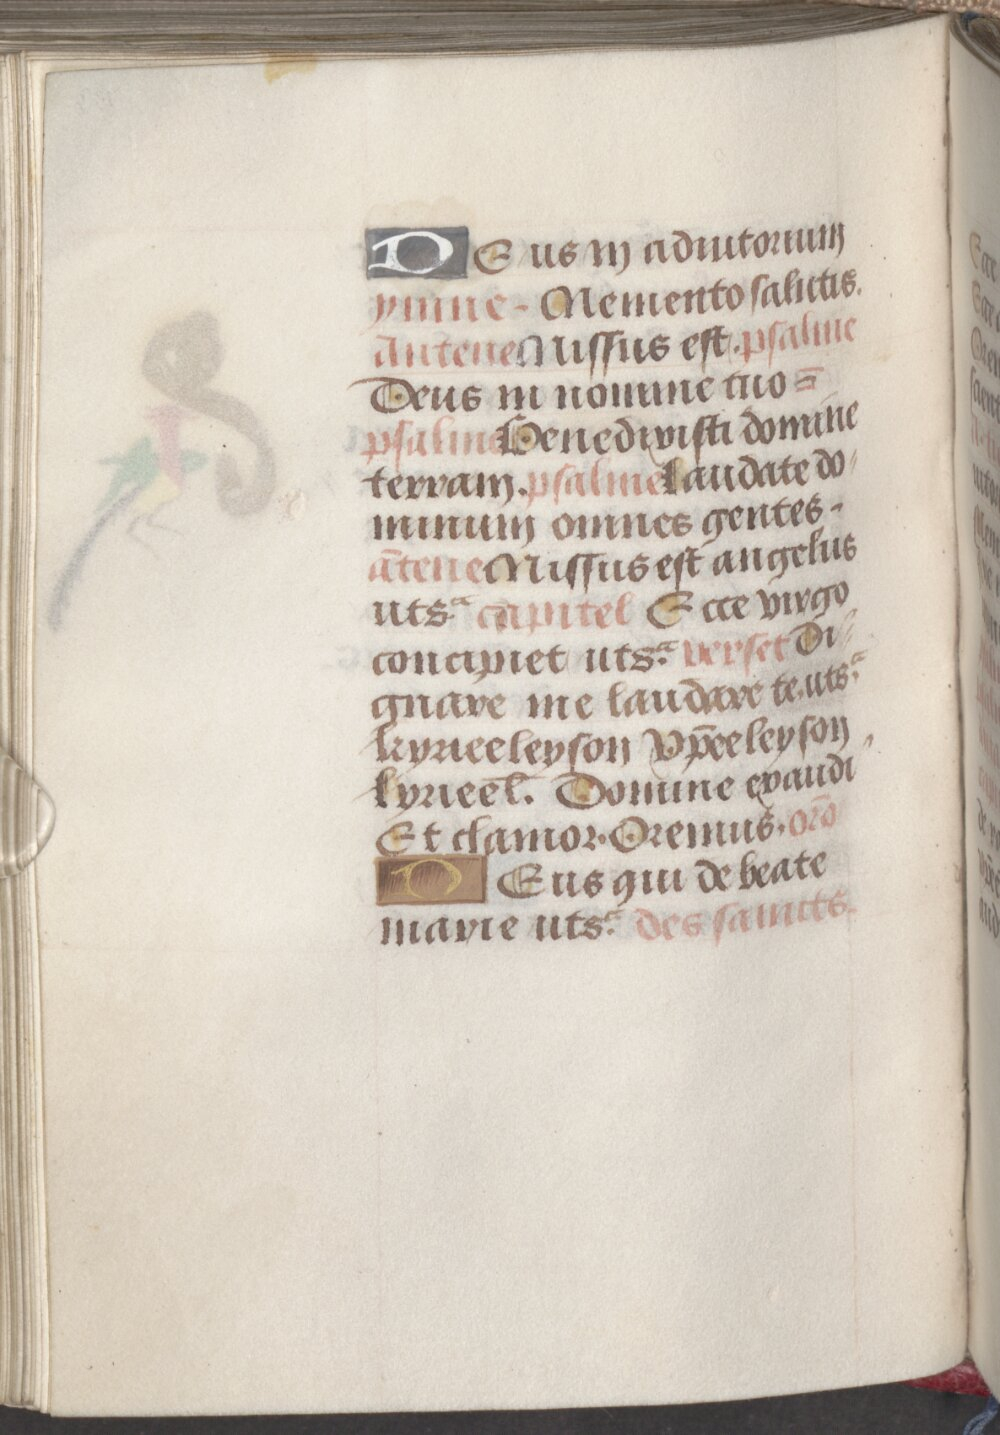 DEus in adiutorium
ymne - Memento salutis.
Antene Missus est. psalme
Deus in nomine tuo =
psalme Benedixisti domine
terram. psalme Laudate do/
minum omnes gentes -
ātene Missus est angelus
utsᵃ capitel Ecce virgo
concipiet utsᵃ. verset Di/
gnare me laudare te. utsᵃ.
kyrieeleyson Xp̄eeleyson
kyrieel̄. Domine exaudi
Et clamor. Oremus. orō
DEus qui de beate
marie utsᵃ. des saincts.